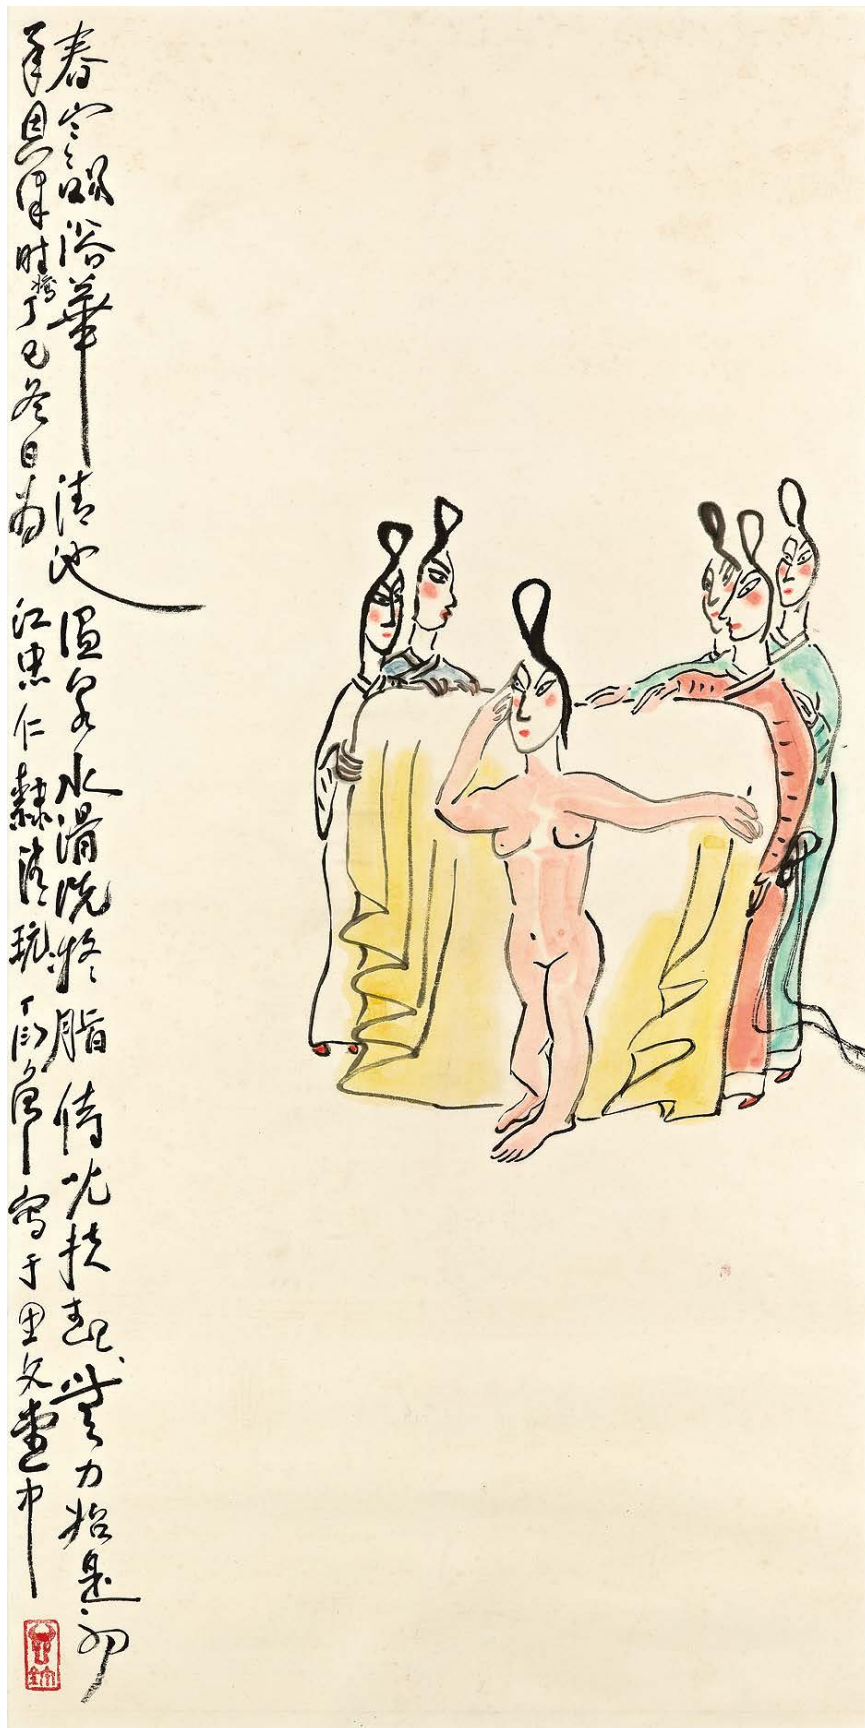 春寒賜浴華清池溫泉水滑洗凝脂侍兒扶起無力始是新
承恩澤時嬌丁巳冬日為江忠仁隸清玩丁衍庸寫于里文中